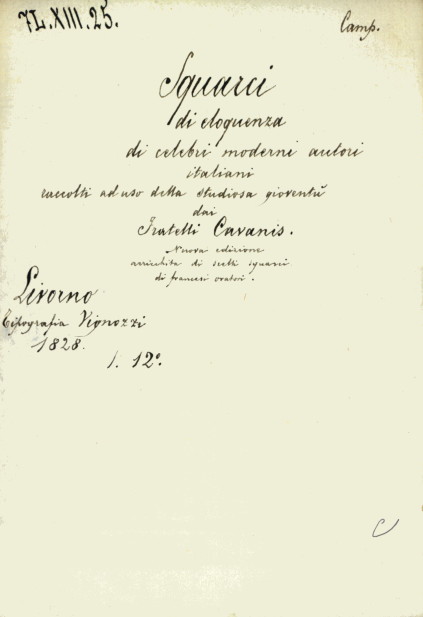 7L.XIII.25.
Camp.
Squarci
di eloquenza
di celebri moderni autori
italiani
raccolti ad uso della studiosa gioventù
dai
Fratelli Cavanis.
Nuova edizione
arricchita di scelti squarci
di francesi oratori.
Livorno
Tipografia Vignozzi
1828.
1. 12°.
C